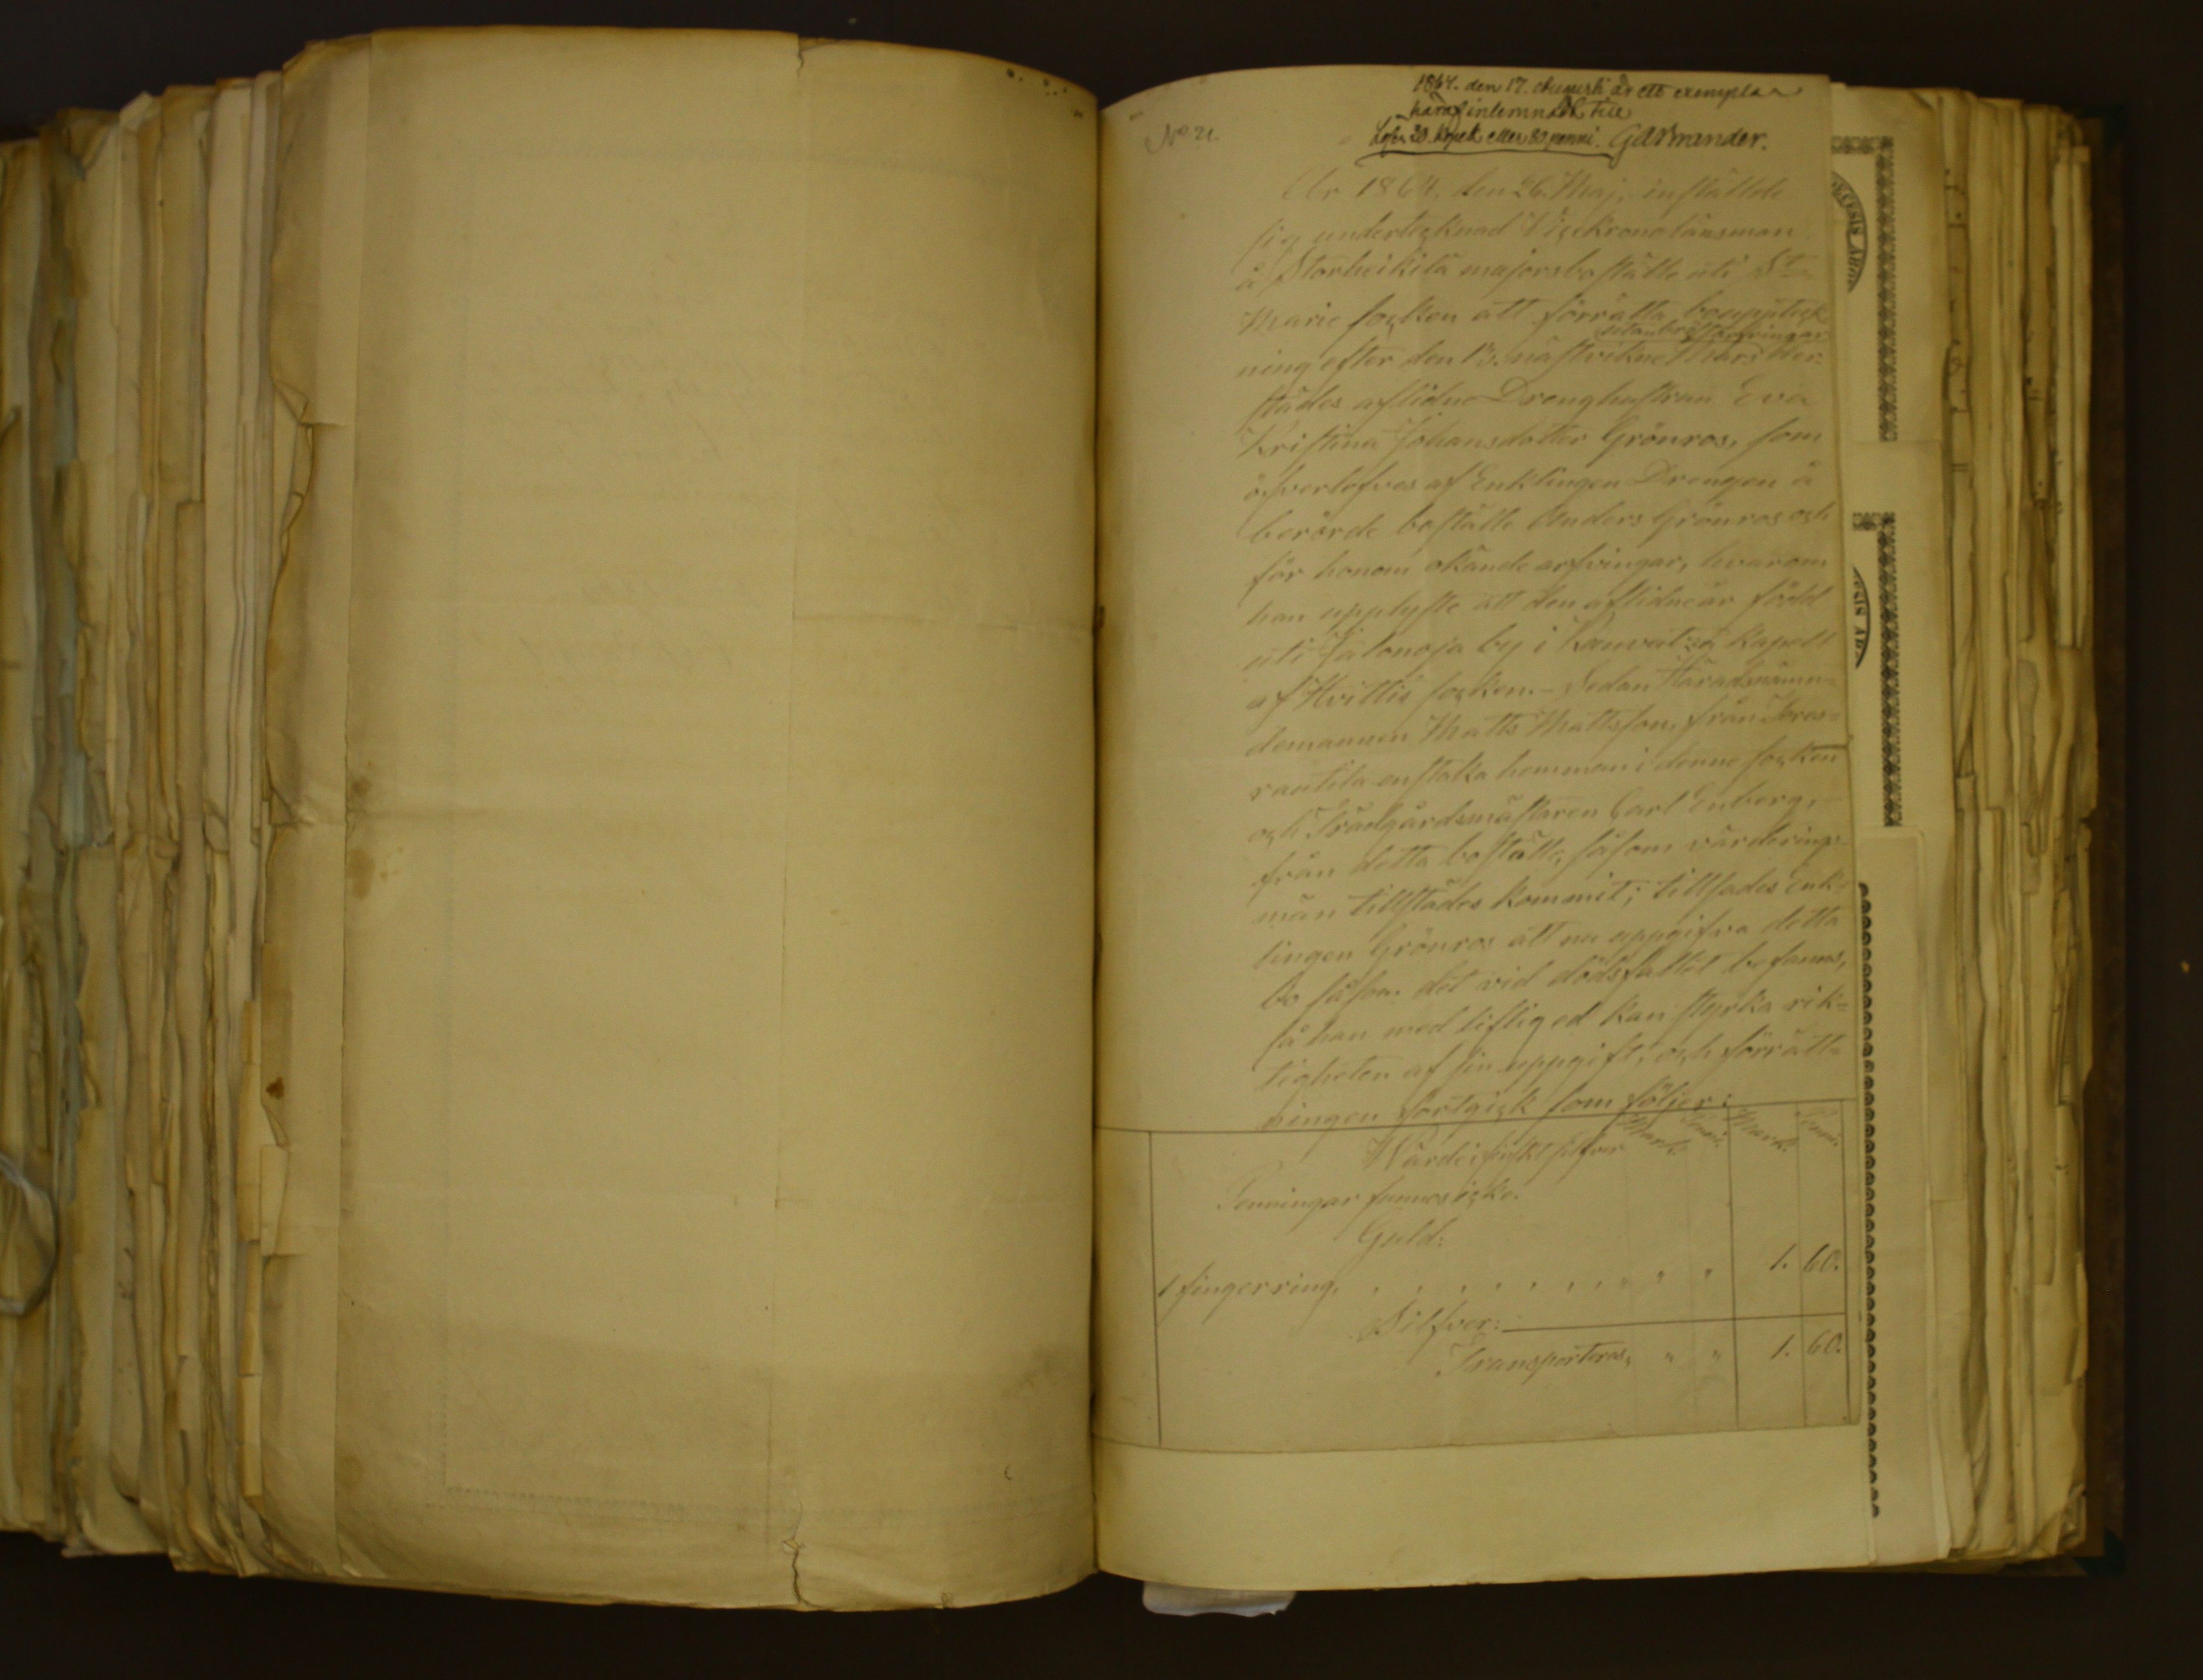 1864. den 17. Augusti är ett exemplar
häraf inlemnadt till
Lösn 20 kopek eller 80 penni. G A Brander.
No 21.
År 1864, den 26. Maj, inställde
sig undertecknad Vicekronolänsman
å Storheikilä majorsboställe uti St
Marie socken att förrätta boupptek-
utan bröstarfvingar
ning efter den 13. nästvikne Mars der-
städes aflidne Drenghustrun Eva
Kristina Johansdotter Grönros, som
öfverlefves af Enklingen Drengen å
berörde boställe Anders Grönros och
för honom okände arfvingar, hvarom
han upplyste att den aflidne är född
uti Jalonoja by i Kauvatsa kapell
af Hvittis socken. - Sedan Häradsnämn-
demannen Matts Mattsson, från
rantila enstaka hemman i denne socken
och Trädgårdsmästaren Carl Enberg,
från detta boställe, såsom värderings-
män tillstädes kommit; tillsades Enk-
lingen Grönros att nu uppgifva detta
bo såsom det vid dödsfallet befanns,
så han med liflig ed kan styrka rik-
tigheten af sin uppgift, och förrätt-
ningen förtgick som följer:
Värde i ryskt silfver Mark. Penni. Mark. Penni.
Penningar funnos icke.
Guld:
1 fingerring, , , , , , , , " " " 1. 60.
Silfver:
Transporteras, " " 1. 60.
ECSIS ABO
ESIS AB